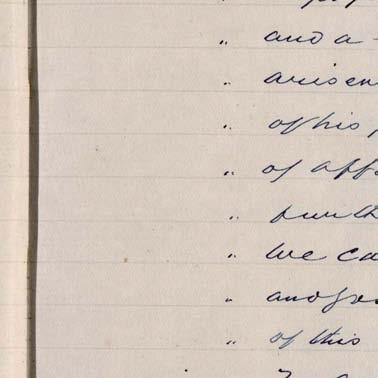 " and a
" arisen
" of his,
" of aff
" furth
" we ca
" and fre
" of this